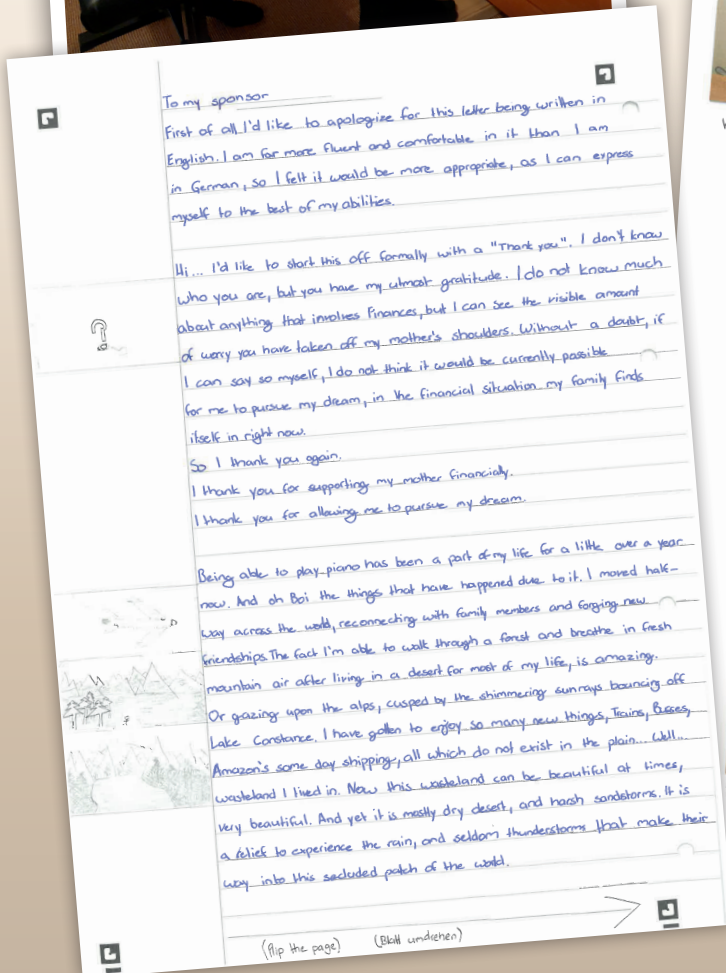 To my sponsor
First of all I'd like to apologize for this letter being written in
English. I am far more fluent and comfortable in it than I am
in German, so I felt it would be more appropriate, as I can express
myself to the best of my abilities.
Hi... I'd like to start this off formally with a "Thank you". I don't know
who you are, but you have my utmost gratitude. I do not know much
about anything that involves Finances, but I can see the visible amount
of worry you have taken off my mother's shoulders. Without a doubt, if
I can say so myself, I do not think it would be currently possible
for me to pursue my dream, in the financial situation my family finds
itself in right now.
So I thank you again.
I thank you for supporting my mother financially.
I thank you for allowing me to pursue my dream.
Being able to play piano has been a part of my life for a little over a year
now. And oh Boi the things that have happened due to it. I moved half-
way across the world, reconnecting with family members and forging new
friendships. The fact I'm able to walk through a forest and breathe in fresh
mountain air after living in a desert for most of my life, is amazing.
Or gazing upon the alps, cusped by the shimmering sunrays bouncing off
Lake Constance. I have gotten to enjoy so many new things, Trains, Busses,
Amazon's same day shipping, all which do not exist in the plain... Well...
wasteland I lived in. Now this wasteland can be beautiful at times,
very beautiful. And yet it is mostly dry desert, and harsh sandstorms. It is
a relief to experience the rain, and seldom thunderstorms that make their
way into this secluded patch of the world.
(flip the page) (Blatt umdrehen)